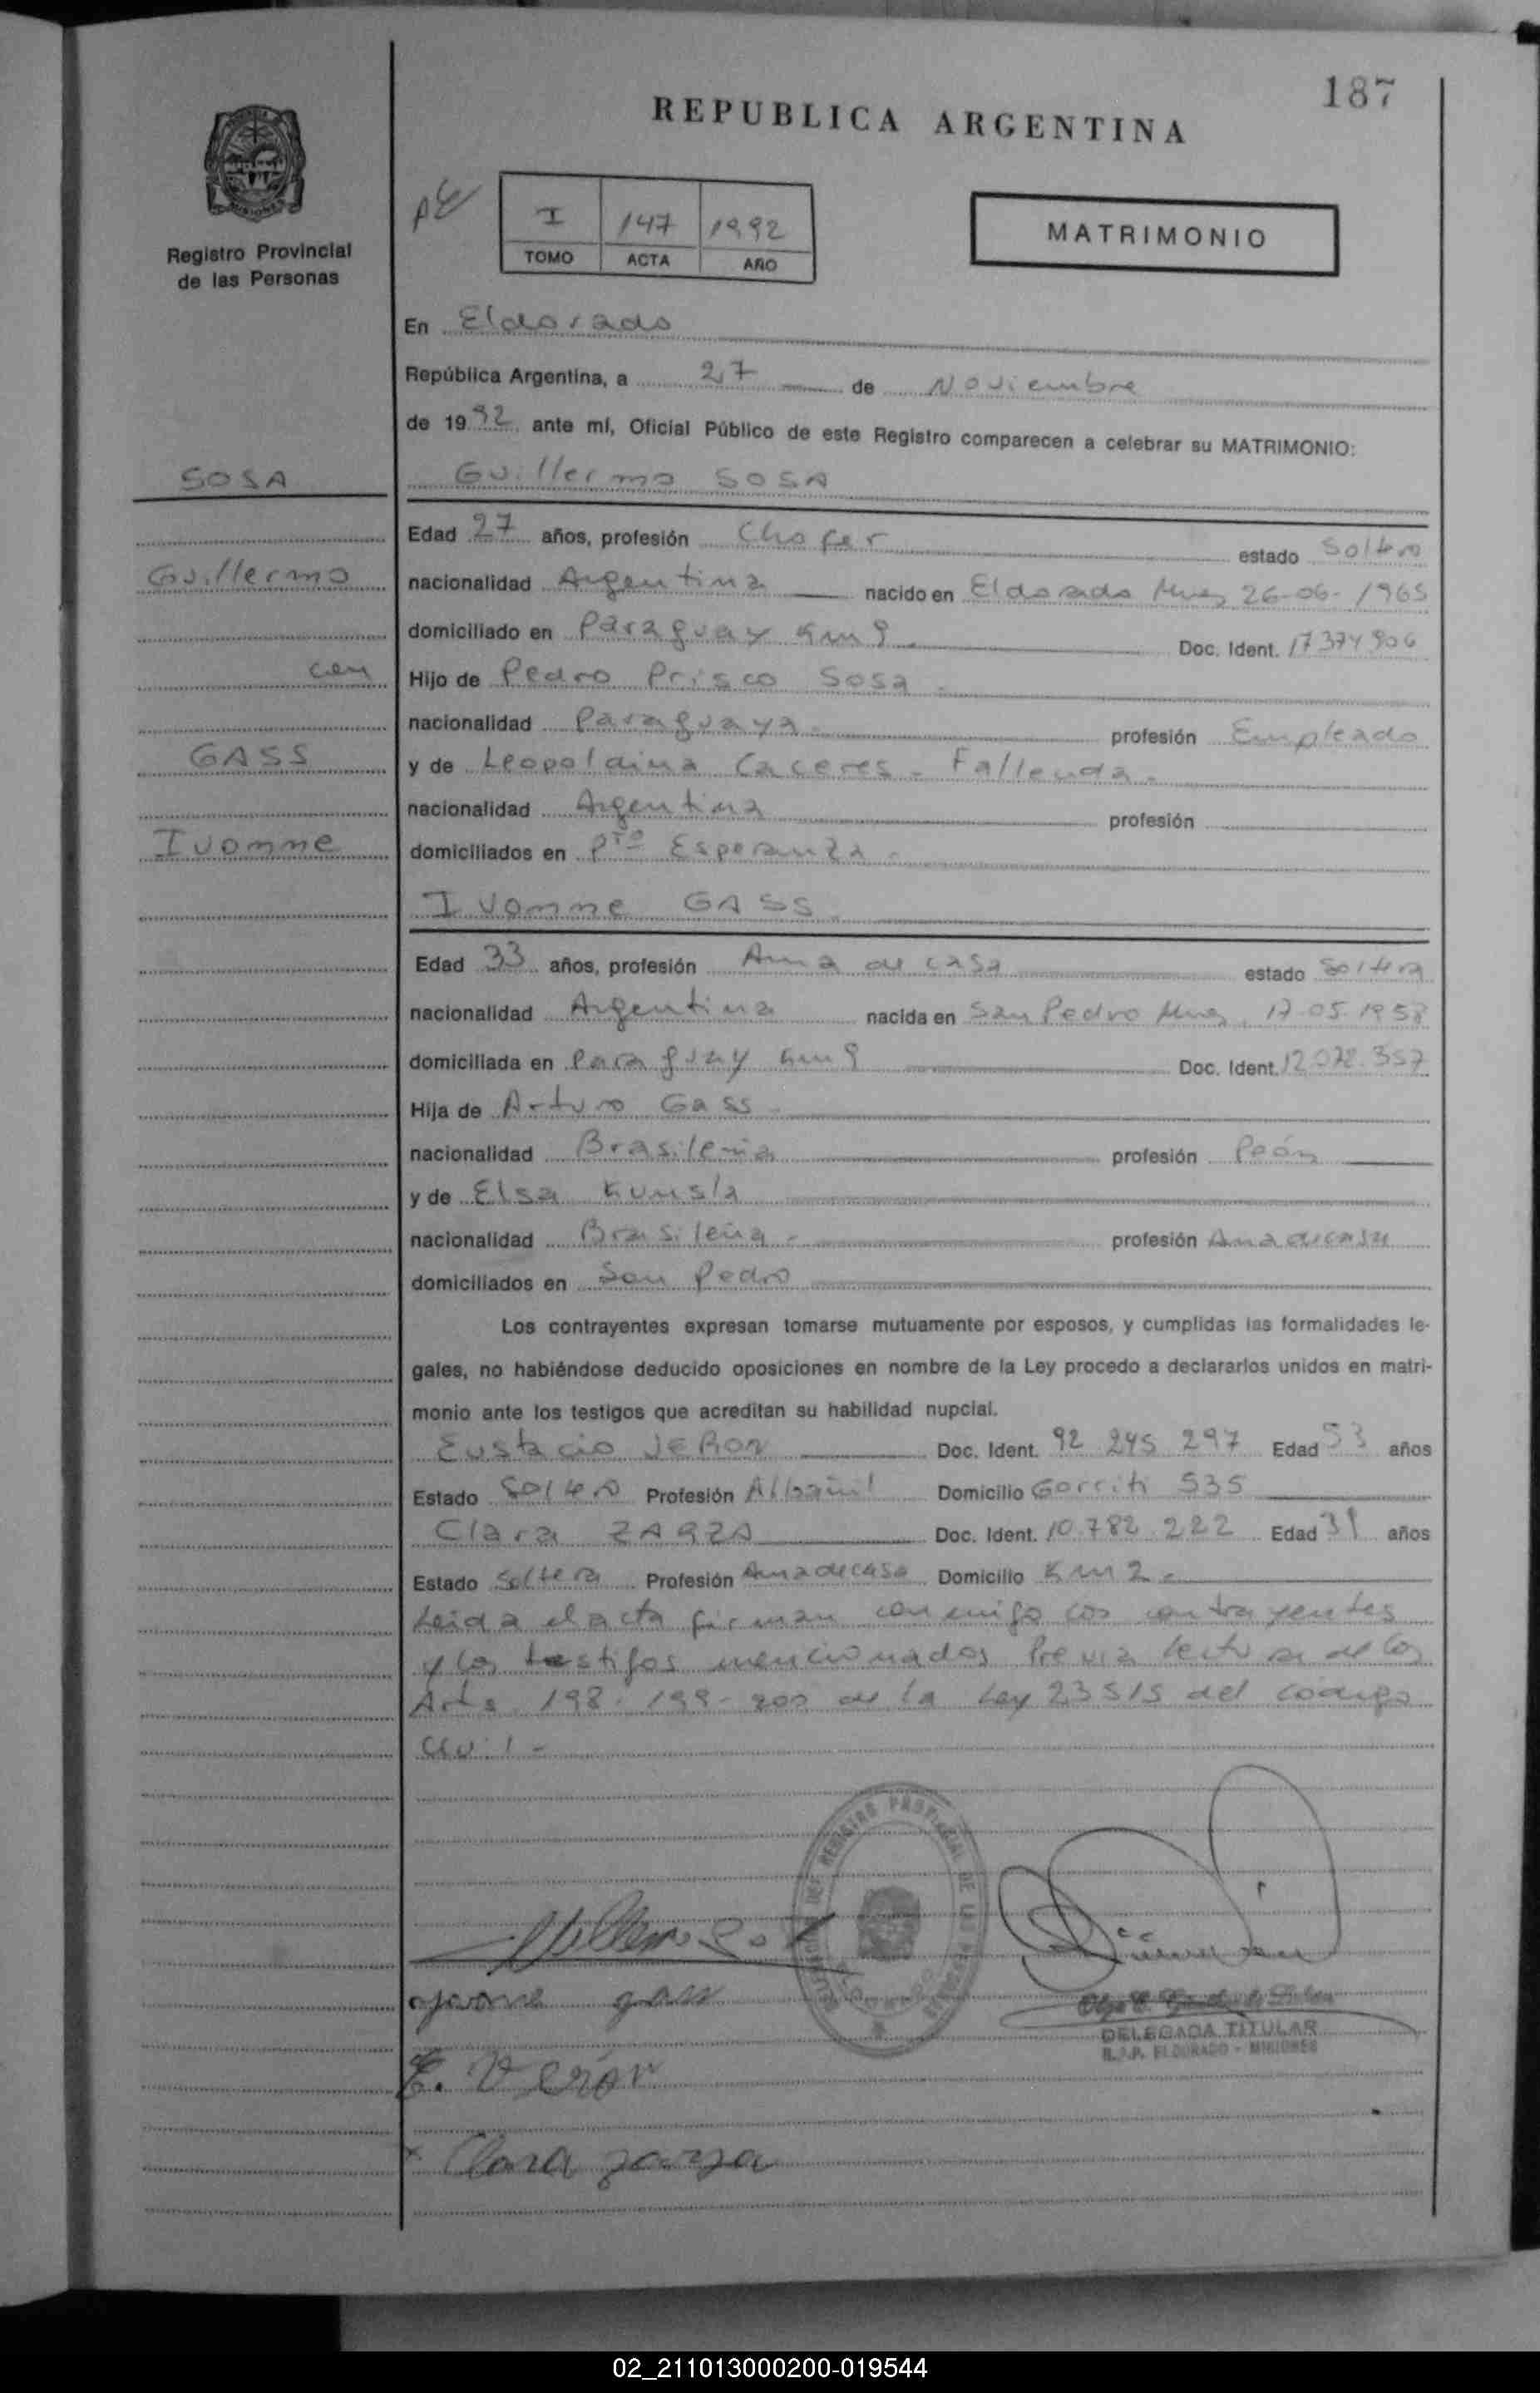 187
REPUBLICA ARGENTINA
MISIONES
Registro Provincial
de las Personas
I 147 1992
TOMO ACTA AÑO
MATRIMONIO
En Eldorado
República Argentina, a 27 de Noviembre
de 1992 ante mí, Oficial Público de este Registro comparecen a celebrar su MATRIMONIO:
SOSA
Guillermo SOSA
Edad 27 años, profesión Chofer estado Soltero
Guillermo
nacionalidad Argentina nacido en Eldorado Mnes 26-06-1965
domiciliado en Paraguay Km 9 Doc. Ident. 17374906
con
Hijo de Pedro Prisco Sosa
nacionalidad Paraguaya profesión Empleado
GASS
y de Leopoldina Caceres - Fallecida -
nacionalidad Argentina profesión
Ivonne
domiciliados en Pto Esperanza -
Ivonne GASS
Edad 33 años, profesión Ama de casa estado Soltera
nacionalidad Argentina nacida en San Pedro Mnes, 17-05-1958
domiciliada en Paraguay Km 9 Doc. Ident. 12.072.357
Hija de Arturo Gass -
nacionalidad Brasileña profesión Peón
y de Elsa
nacionalidad Brasileña - profesión Ama de casa
domiciliados en San Pedro
Los contrayentes expresan tomarse mutuamente por esposos, y cumplidas las formalidades le-
gales, no habiéndose deducido oposiciones en nombre de la Ley procedo a declararlos unidos en matri-
monio ante los testigos que acreditan su habilidad nupcial.
Eustacio VERON Doc. Ident. 92 245 297 Edad 53 años
Estado Soltero Profesión Albañil Domicilio Gorriti 535
Clara ZARZA Doc. Ident. 10.782.222 Edad 31 años
Estado Soltera Profesión Ama de casa Domicilio Km 2 -
Leida el acta firman conmigo los contrayentes
y los testigos mencionados Previa lectura de los
Arts 198-199-200 de la Ley 23515 del codigo
Civil -
E. Verón
Clara zarza
DELEGADA TITULAR
R.P.P. ELDORADO - MISIONES
02_211013000200-019544